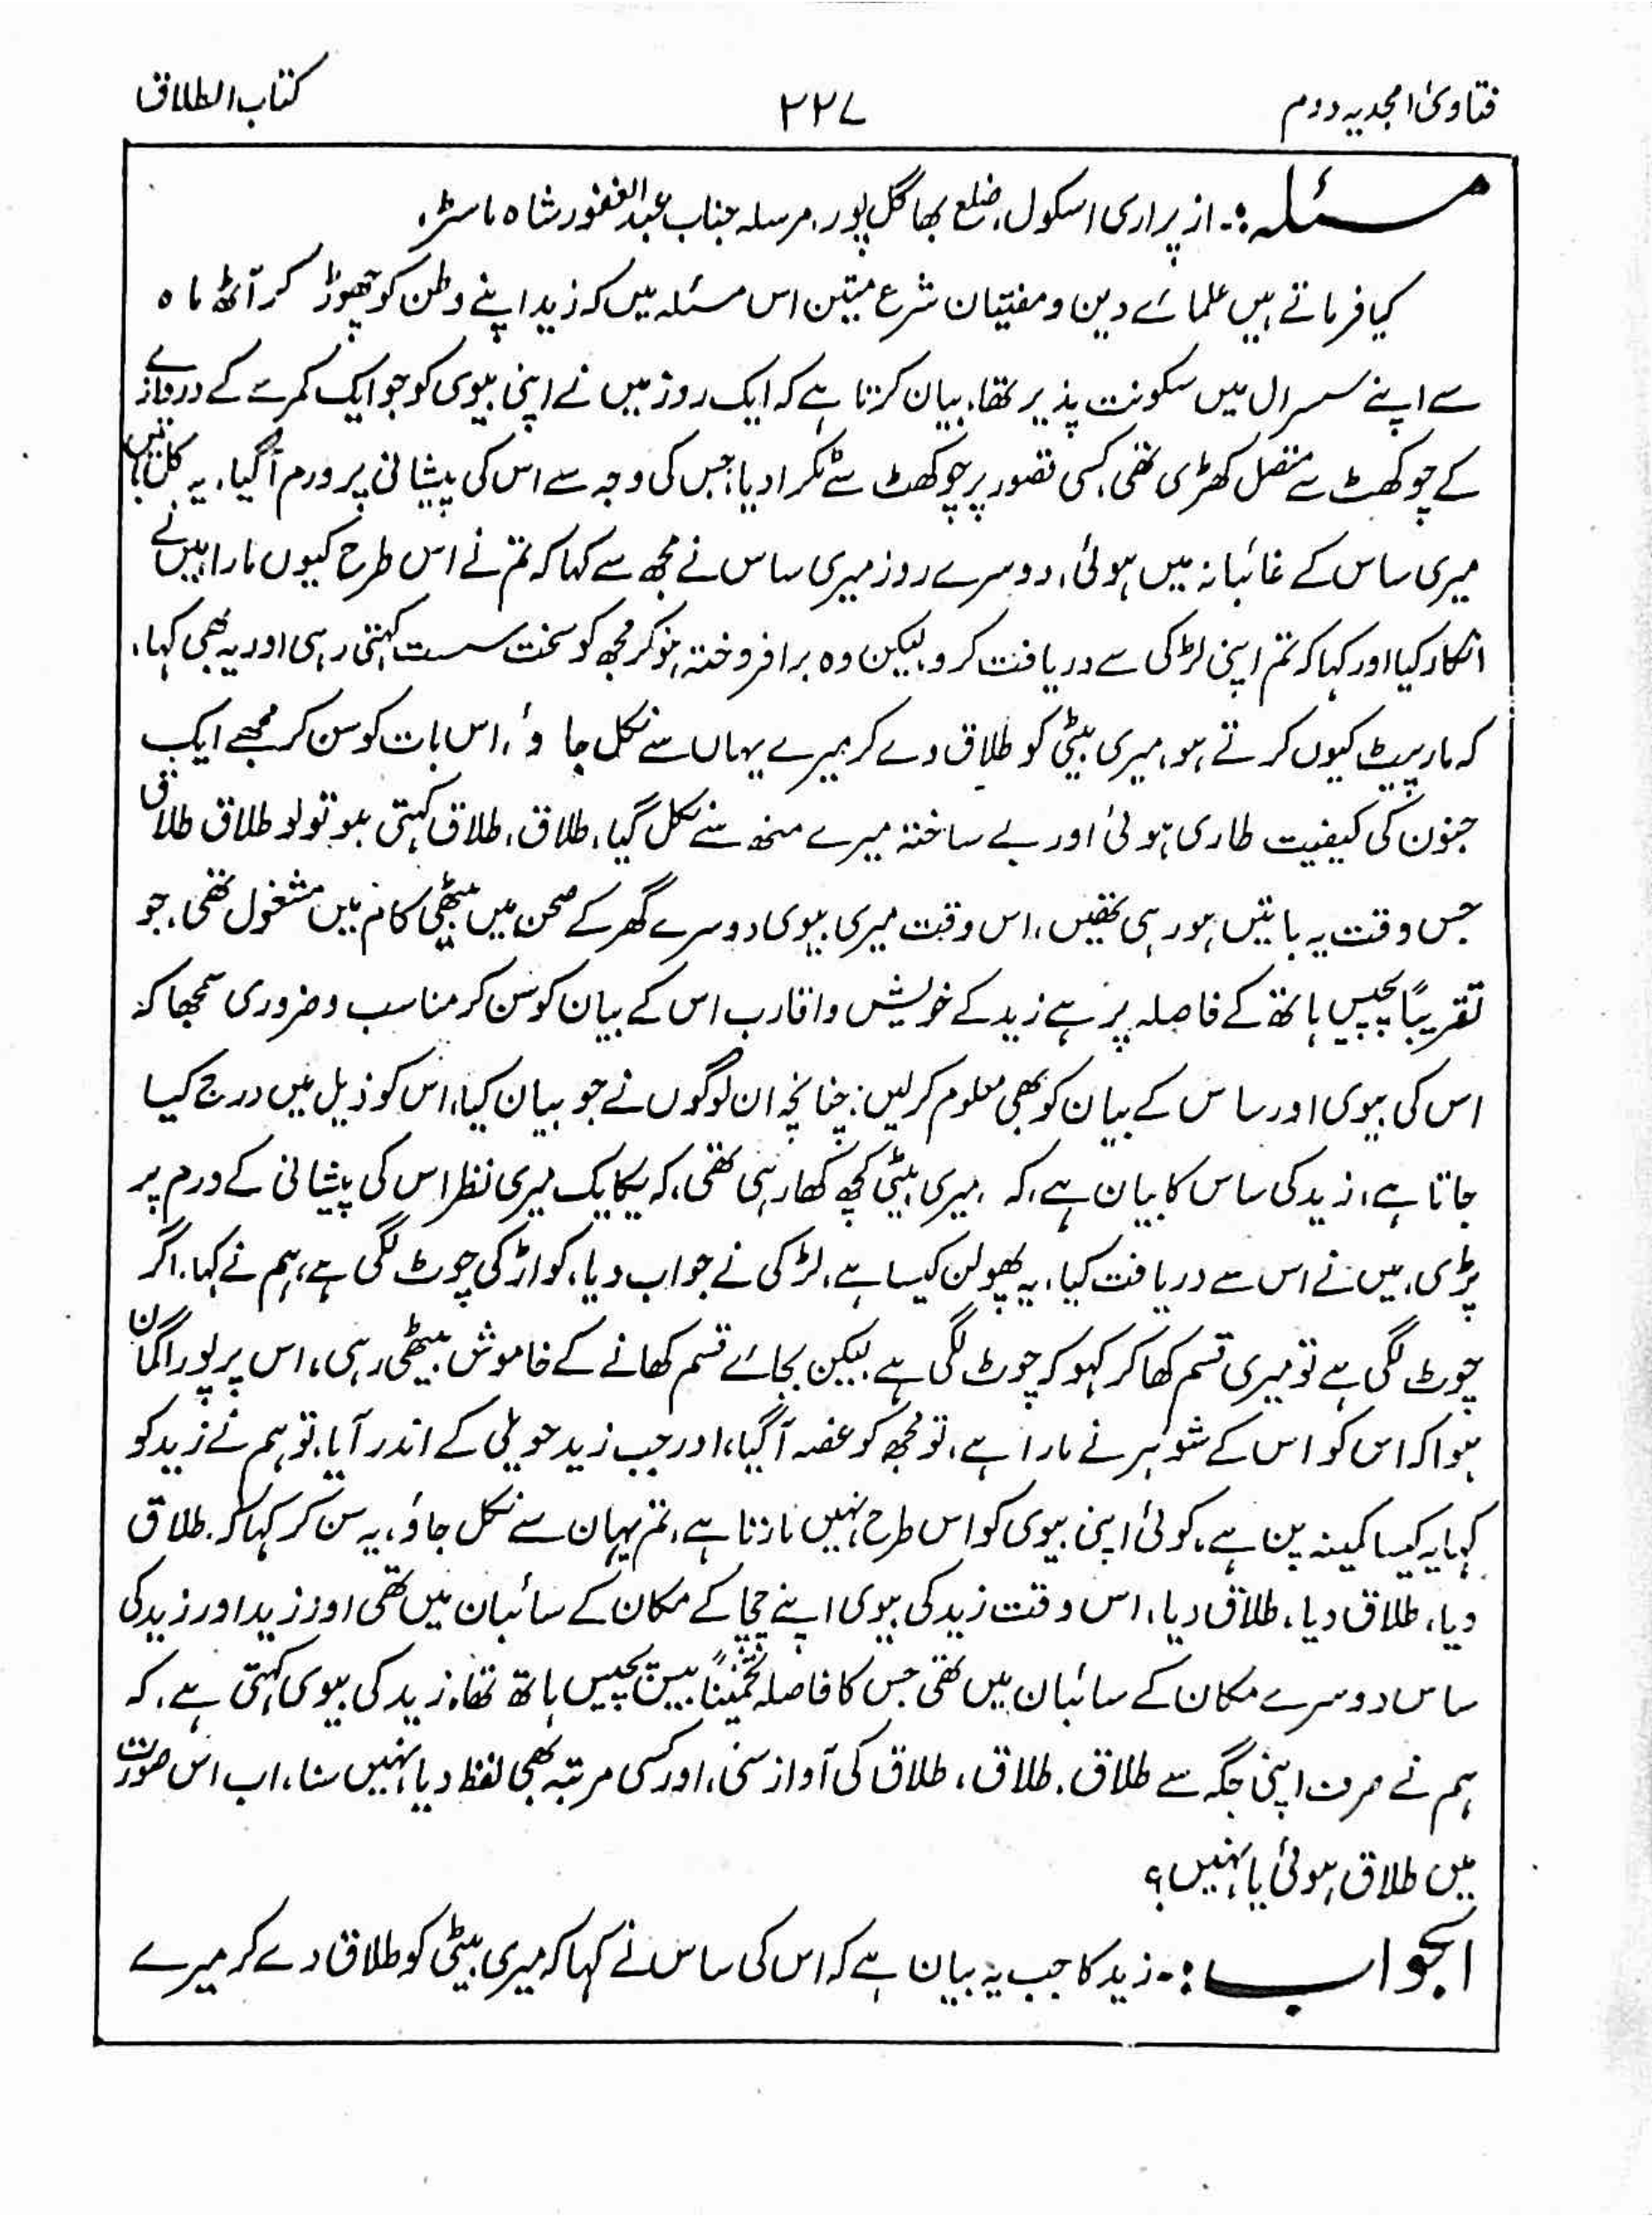 فتاویٰ امجدیہ دوم ۲۲۷ کتاب الطلاق
مسئلہ:۔ از پراری اسکول، ضلع بھاگل پور، مرسلہ جناب عبدالغفور شاہ ماسٹر،
کیا فرماتے ہیں علمائے دین و مفتیان شرع متین اس مسئلہ میں کہ زید اپنے وطن کو چھوڑ کر آٹھ ماہ
سے اپنے سسرال میں سکونت پذیر تھا، بیان کرتا ہے کہ ایک روز میں نے اپنی بیوی کو جو ایک کمرے کے دروازے
کے چوکھٹ سے متصل کھڑی تھی، کسی قصور پر چوکھٹ سے ٹکرا دیا، جس کی وجہ سے اس کی پیشانی پر ورم آگیا، یہ کل باتیں
میری ساس کے غائبانہ میں ہوئی، دوسرے روز میری ساس نے مجھ سے کہا کہ تم نے اس طرح کیوں مارا، میں نے
انکار کیا اور کہا کہ تم اپنی لڑکی سے دریافت کرو، لیکن وہ برافروختہ ہو کر مجھ کو سخت سست کہتی رہی اور یہ بھی کہا،
کہ مارپیٹ کیوں کرتے ہو، میری بیٹی کو طلاق دے کر میرے یہاں سے نکل جاؤ، اس بات کو سن کر مجھے ایک
جنون کی کیفیت طاری ہوئی اور بے ساختہ میرے منھ سے نکل گیا، طلاق، طلاق کہتی ہو تو لو طلاق طلاق
جس وقت یہ باتیں ہو رہی تھیں، اس وقت میری بیوی دوسرے گھر کے صحن میں بیٹھی کام میں مشغول تھی، جو
تقریباً پچیس ہاتھ کے فاصلہ پر ہے زید کے خویش واقارب اس کے بیان کو سن کر مناسب وضروری سمجھا کہ
اس کی بیوی اور ساس کے بیان کو بھی معلوم کرلیں: چنانچہ ان لوگوں نے جو بیان کیا، اس کو ذیل میں درج کیا
جاتا ہے، زید کی ساس کا بیان ہے، کہ، میری بیٹی کچھ کھا رہی تھی، کہ یکایک میری نظر اس کی پیشانی کے ورم پر
پڑی، میں نے اس سے دریافت کیا، یہ پھولن کیسا ہے، لڑکی نے جواب دیا، کواڑ کی چوٹ لگی ہے، ہم نے کہا، اگر
چوٹ لگی ہے تو میری قسم کھا کر کہو کہ چوٹ لگی ہے لیکن بجائے قسم کھانے کے خاموش بیٹھی رہی، اس پر پورا گمان
ہوا کہ اس کو اس کے شوہر نے مارا ہے، تو مجھ کو غصہ آگیا، اور جب زید حویلی کے اندر آیا، تو ہم نے زید کو
کہا یہ کیسا کمینہ پن ہے، کوئی اپنی بیوی کو اس طرح نہیں مارتا ہے، تم یہان سے نکل جاؤ، یہ سن کر کہا کہ، طلاق
دیا، طلاق دیا، طلاق دیا، اس وقت زید کی بیوی اپنے چچا کے مکان کے سائبان میں تھی اور زید اور زید کی
ساس دوسرے مکان کے سائبان میں تھی جس کا فاصلہ تخمیناً بیس پچیس ہاتھ تھا، زید کی بیوی کہتی ہے، کہ
ہم نے صرف اپنی جگہ سے طلاق، طلاق، طلاق کی آواز سنی، اور کسی مرتبہ بھی لفظ دیا نہیں سنا، اب اس صورت
میں طلاق ہوئی یا نہیں؟
الجواب:۔ زید کا جب یہ بیان ہے کہ اس کی ساس نے کہا کہ میری بیٹی کو طلاق دے کر میرے